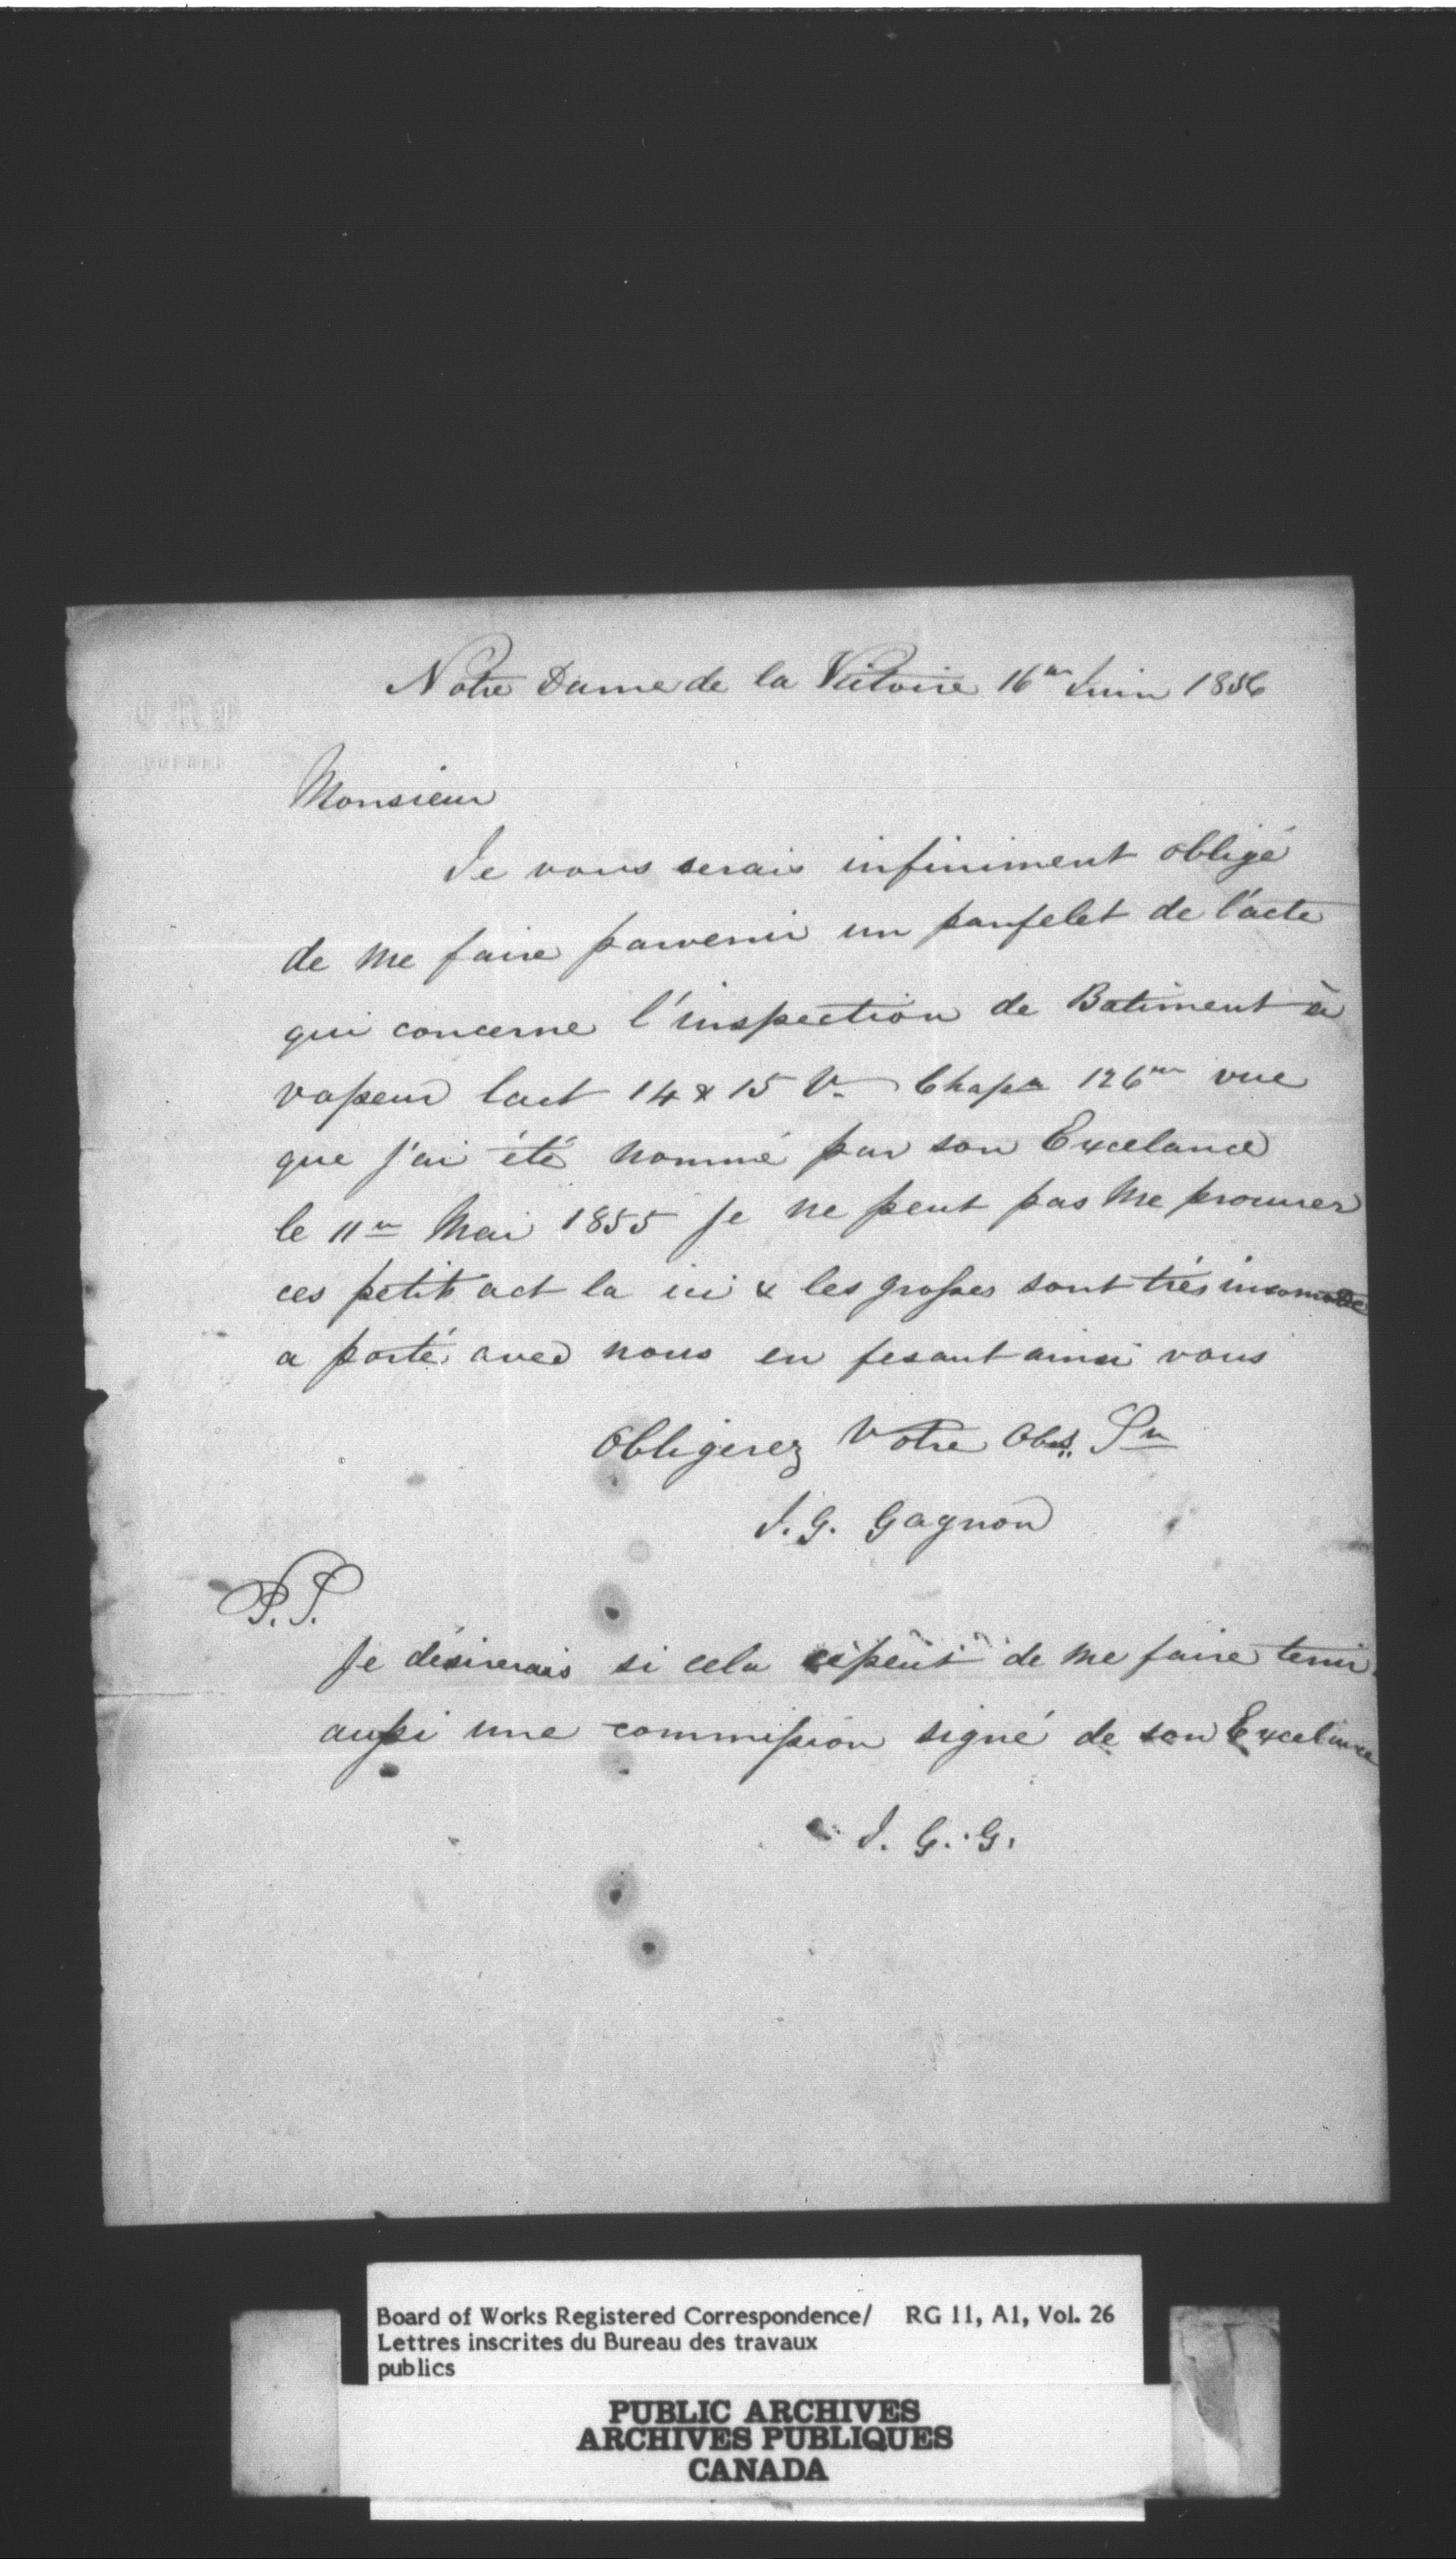 Notre Dame de la Victoire 16me Juin 1856
Monsieur
Je vous serais infiniment obligé
de me faire parvenir un panfelet de l'acte
qui concerne l'inspection de Batiment à
vapeur lact 14 & 15 V. Chap. 126me vue
que j'ai été nommé par son Excelance
le 11me Mai 1855 je ne peut pas me procurer
ces petit act la ici & les grosses sont très incomode
a porté avec nous en fesant ainsi vous
obligerez Votre Obt. Sr
J. G. Gagnon
P.S.
Je désirerais si cela ce peut de me faire tenir
aussi une commission signé de son Excelance
J. G. G.
Board of Works Registered Correspondence/ RG 11, A1, Vol. 26
Lettres inscrites du Bureau des travaux
publics
PUBLIC ARCHIVES
ARCHIVES PUBLIQUES
CANADA